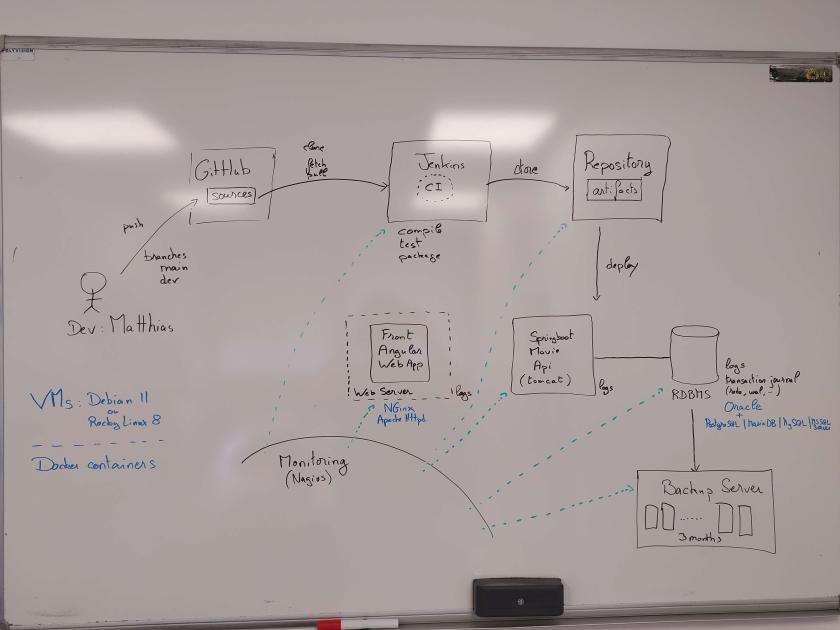 GitHub
sources
clone
fetch
pull
Jenkins
CI
compile
test
package
store
Repository
artifacts
push
branches
main
dev
Dev: Matthias
deploy
Front
Angular
WebApp
Web Server
logs
NGinx
Apache Httpd
Springboot
Movie
Api
(tomcat)
logs
RDBMS
logs
transaction journal
Oracle
+
PostgreSQL | MariaDB | MySQL | MSSQL
VMs: Debian 11
ou
Rocky Linux 8
Docker containers
Monitoring
(Nagios)
Backup Server
......
3 months